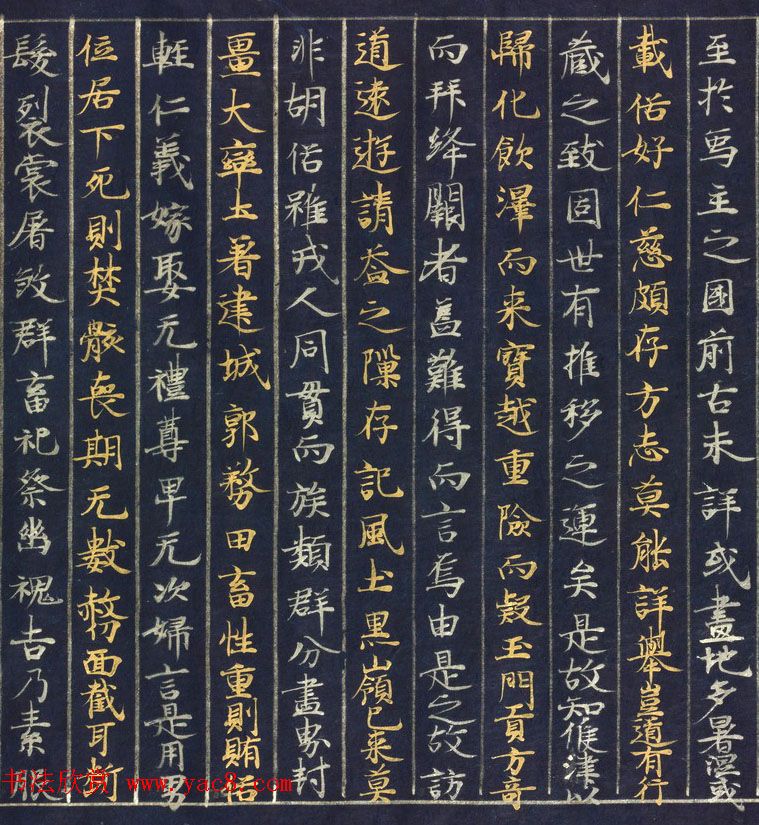 至於寫主之國前古未詳或畫地多暑濕或
載俗好仁慈頗存方志莫能詳舉豈道有行
藏之致固世有推移之運矣是故知候律以
歸化飲澤而来賓越重險而款玉門貢方奇
而拜絳闕者蓋難得而言焉由是之故訪
道遠遊請益之隙存記風土黑嶺已来莫
非胡俗雖戎人同貫而族類群分畫界封
畺大率土著建城郭務田畜性重則賄俗
輕仁義嫁娶无禮尊卑无次婦言是用男
位居下死則焚骸喪期无數剺面截耳斷
髮裂裳屠煞群畜祀祭幽魂吉乃素服
书法欣赏 www.yac8.com